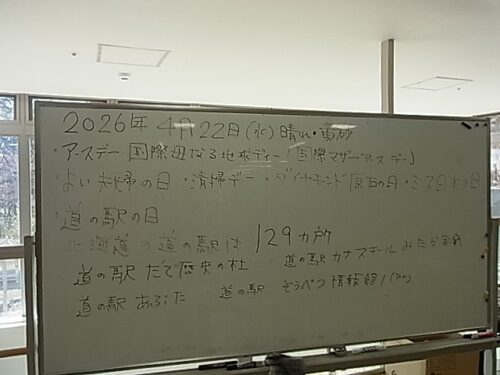 2026年 4月22日(水) 晴れ・黄砂
・アースデー【国際母なる地球デー 国際マザーアースデー】
・よい夫婦の日 ・清掃デー・ダイヤモンド原石の日・ミス日本の日
・道の駅の日
北海道の道の駅は 129ヵ所
道の駅 だて歴史の杜 ・道の駅
道の駅 あぷた ・道の駅 そうべつ情報館i